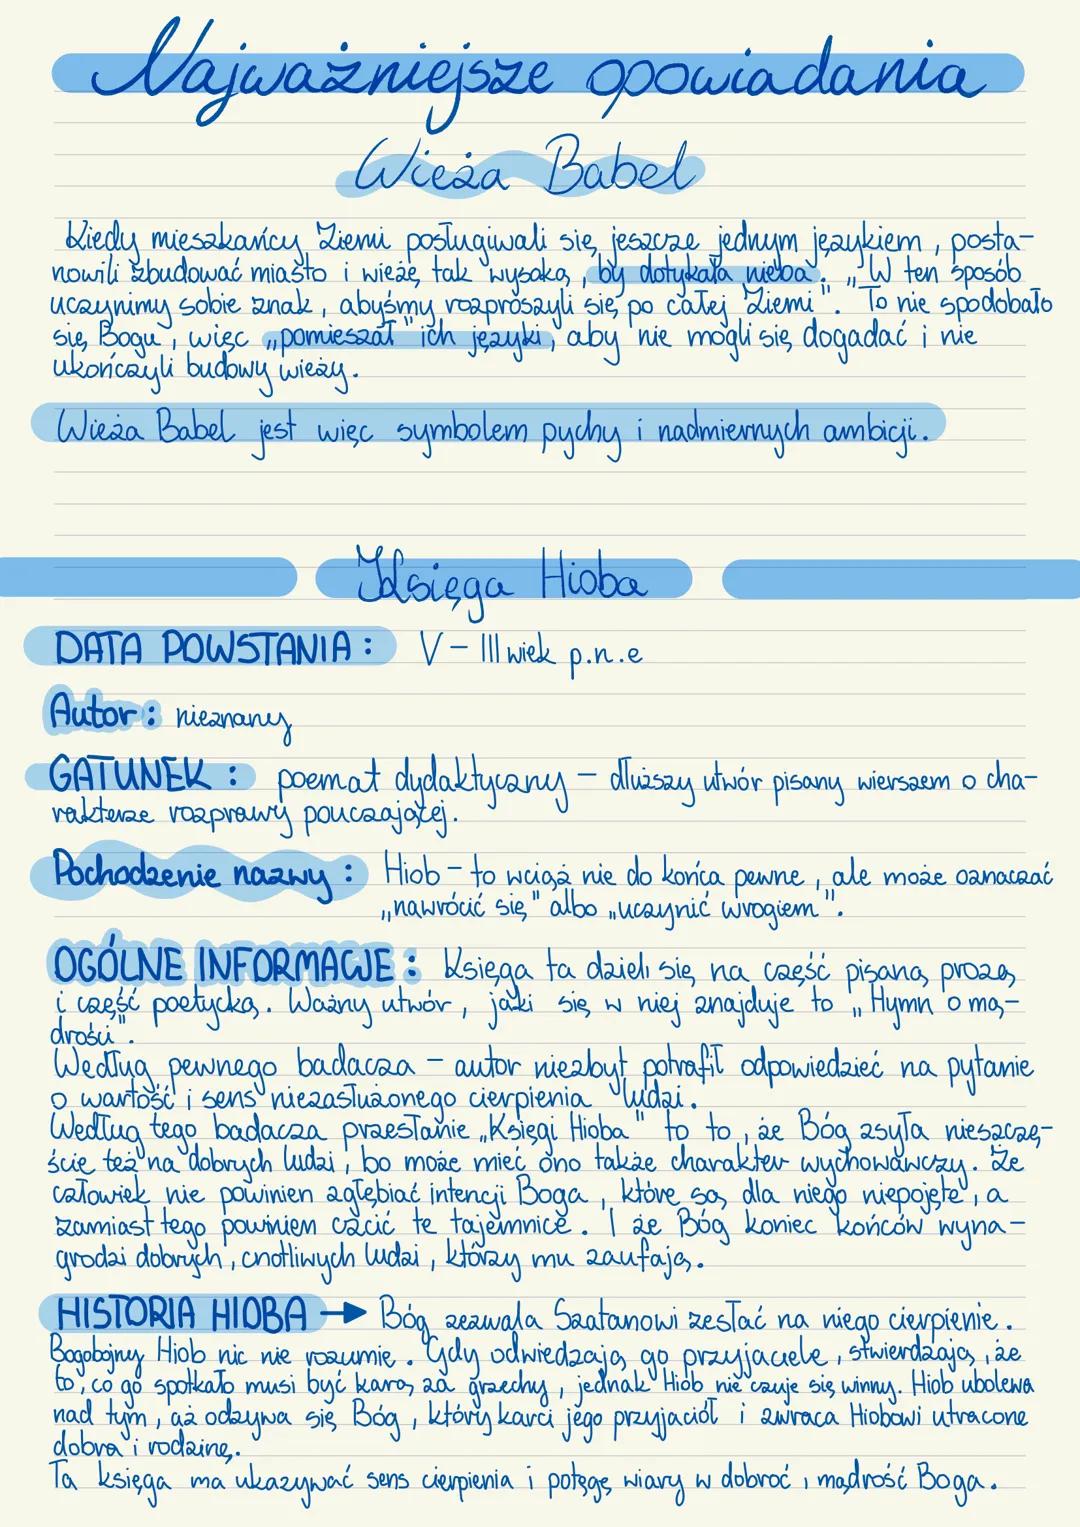 Najważniejsze opowiadania
Wieża Babel
Kiedy mieszkańcy Ziemi posługiwali się jeszcze jednym językiem, posta-
nowili zbudować miasto i wieżę tak wysoką, by dotykała nieba. „W ten sposób
uczynimy sobie znak, abyśmy rozproszyli się po całej Ziemi". To nie spodobało
się Bogu, więc „pomieszał" ich języki, aby nie mogli się dogadać i nie
ukończyli budowy wieży.
Wieża Babel jest więc symbolem pychy i nadmiernych ambicji.
Księga Hioba
DATA POWSTANIA: V – III wiek p.n.e
Autor: nieznany
GATUNEK: poemat dydaktyczny – dłuższy utwór pisany wierszem o cha-
rakterze rozprawy pouczającej.
Pochodzenie nazwy: Hiob – to wciąż nie do końca pewne, ale może oznaczać
„nawrócić się" albo „uczynić wrogiem".
OGÓLNE INFORMACJE: Księga ta dzieli się na część pisaną prozą
i część poetycką. Ważny utwór, jaki się w niej znajduje to „Hymn o mą-
drości".
Według pewnego badacza – autor niezbyt potrafił odpowiedzieć na pytanie
o wartość i sens niezasłużonego cierpienia ludzi.
Według tego badacza przesłanie „Księgi Hioba" to to, że Bóg zsyła nieszczę-
ście też na dobrych ludzi, bo może mieć ono także charakter wychowawczy. Że
człowiek nie powinien zgłębiać intencji Boga, które są dla niego niepojęte, a
zamiast tego powinien czcić te tajemnice. I że Bóg koniec końców wyna-
grodzi dobrych, cnotliwych ludzi, którzy mu zaufają.
HISTORIA HIOBA → Bóg zezwala Szatanowi zesłać na niego cierpienie.
Bogobojny Hiob nic nie rozumie. Gdy odwiedzają go przyjaciele, stwierdzają, że
to, co go spotkało musi być karą za grzechy, jednak Hiob nie czuje się winny. Hiob ubolewa
nad tym, aż odzywa się Bóg, który karci jego przyjaciół i zwraca Hiobowi utracone
dobra i rodzinę.
Ta księga ma ukazywać sens cierpienia i potęgę wiary w dobroć, mądrość Boga.